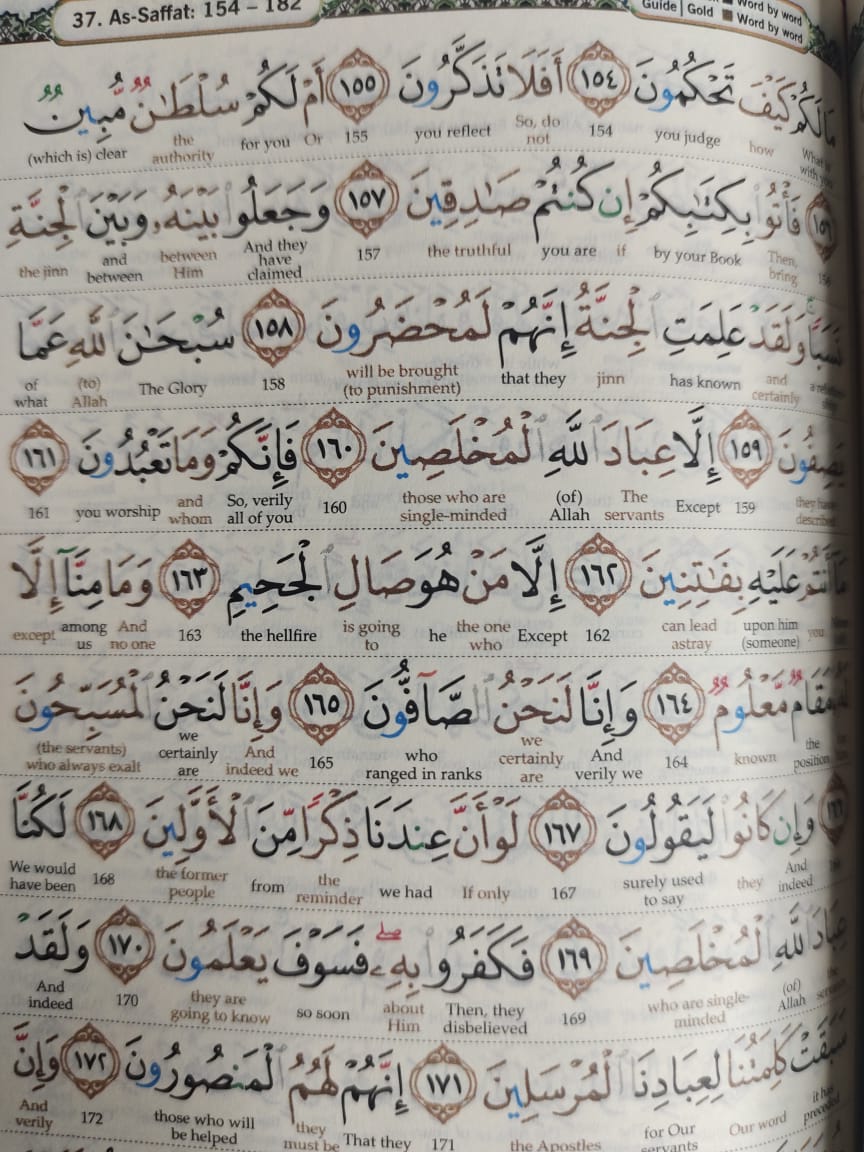 37. As-Saffat: 154 – 182
Guide | Gold Word by word
Word by word
مَالَكُمْ كَيْفَ تَحْكُمُونَ ١٥٤ أَفَلَا تَذَكَّرُونَ ١٥٥ أَمْ لَكُمْ سُلْطَـٰنٌ مُّبِينٌ
(which is) clear the authority for you Or 155 you reflect So, do not 154 you judge how
فَأْتُوا۟ بِكِتَـٰبِكُمْ إِن كُنتُمْ صَـٰدِقِينَ ١٥٧ وَجَعَلُوا۟ بَيْنَهُۥ وَبَيْنَ ٱلْجِنَّةِ
the jinn and between between Him And they have claimed 157 the truthful you are if by your Book Then, bring 156
نَسَبًا وَلَقَدْ عَلِمَتِ ٱلْجِنَّةُ إِنَّهُمْ لَمُحْضَرُونَ ١٥٨ سُبْحَـٰنَ ٱللَّهِ عَمَّا
of what (to) Allah The Glory 158 will be brought (to punishment) that they jinn has known and certainly
يَصِفُونَ ١٥٩ إِلَّا عِبَادَ ٱللَّهِ ٱلْمُخْلَصِينَ ١٦٠ فَإِنَّكُمْ وَمَا تَعْبُدُونَ ١٦١
161 you worship and whom So, verily all of you 160 those who are single-minded (of) Allah The servants Except 159 they have described
مَآ أَنتُمْ عَلَيْهِ بِفَـٰتِنِينَ ١٦٢ إِلَّا مَنْ هُوَ صَالِ ٱلْجَحِيمِ ١٦٣ وَمَا مِنَّآ إِلَّا
except among us And no one 163 the hellfire is going to he the one who Except 162 can lead astray upon him (someone) you
لَهُۥ مَقَامٌ مَّعْلُومٌ ١٦٤ وَإِنَّا لَنَحْنُ ٱلصَّآفُّونَ ١٦٥ وَإِنَّا لَنَحْنُ ٱلْمُسَبِّحُونَ
(the servants) who always exalt we certainly are And indeed we 165 who ranged in ranks we certainly are And verily we 164 known the position
١٦٦ وَإِن كَانُوا۟ لَيَقُولُونَ ١٦٧ لَوْ أَنَّ عِندَنَا ذِكْرًا مِّنَ ٱلْأَوَّلِينَ ١٦٨ لَكُنَّا
We would have been 168 the former people from the reminder we had If only 167 surely used to say they And indeed
عِبَادَ ٱللَّهِ ٱلْمُخْلَصِينَ ١٦٩ فَكَفَرُوا۟ بِهِۦ ۖ فَسَوْفَ يَعْلَمُونَ ١٧٠ وَلَقَدْ
And indeed 170 they are going to know so soon about Him Then, they disbelieved 169 who are single-minded (of) Allah the servants
سَبَقَتْ كَلِمَتُنَا لِعِبَادِنَا ٱلْمُرْسَلِينَ ١٧١ إِنَّهُمْ لَهُمُ ٱلْمَنصُورُونَ ١٧٢ وَإِنَّ
And verily 172 those who will be helped they must be That they 171 the Apostles for Our servants Our word it has preceded